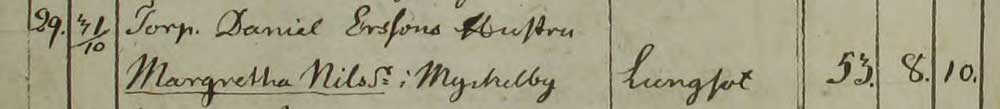 29. 31/10 Torp. Daniel Erssons Hustru
Margretha Nilsdr i Myckelby Lungsot 53. 8. 10.